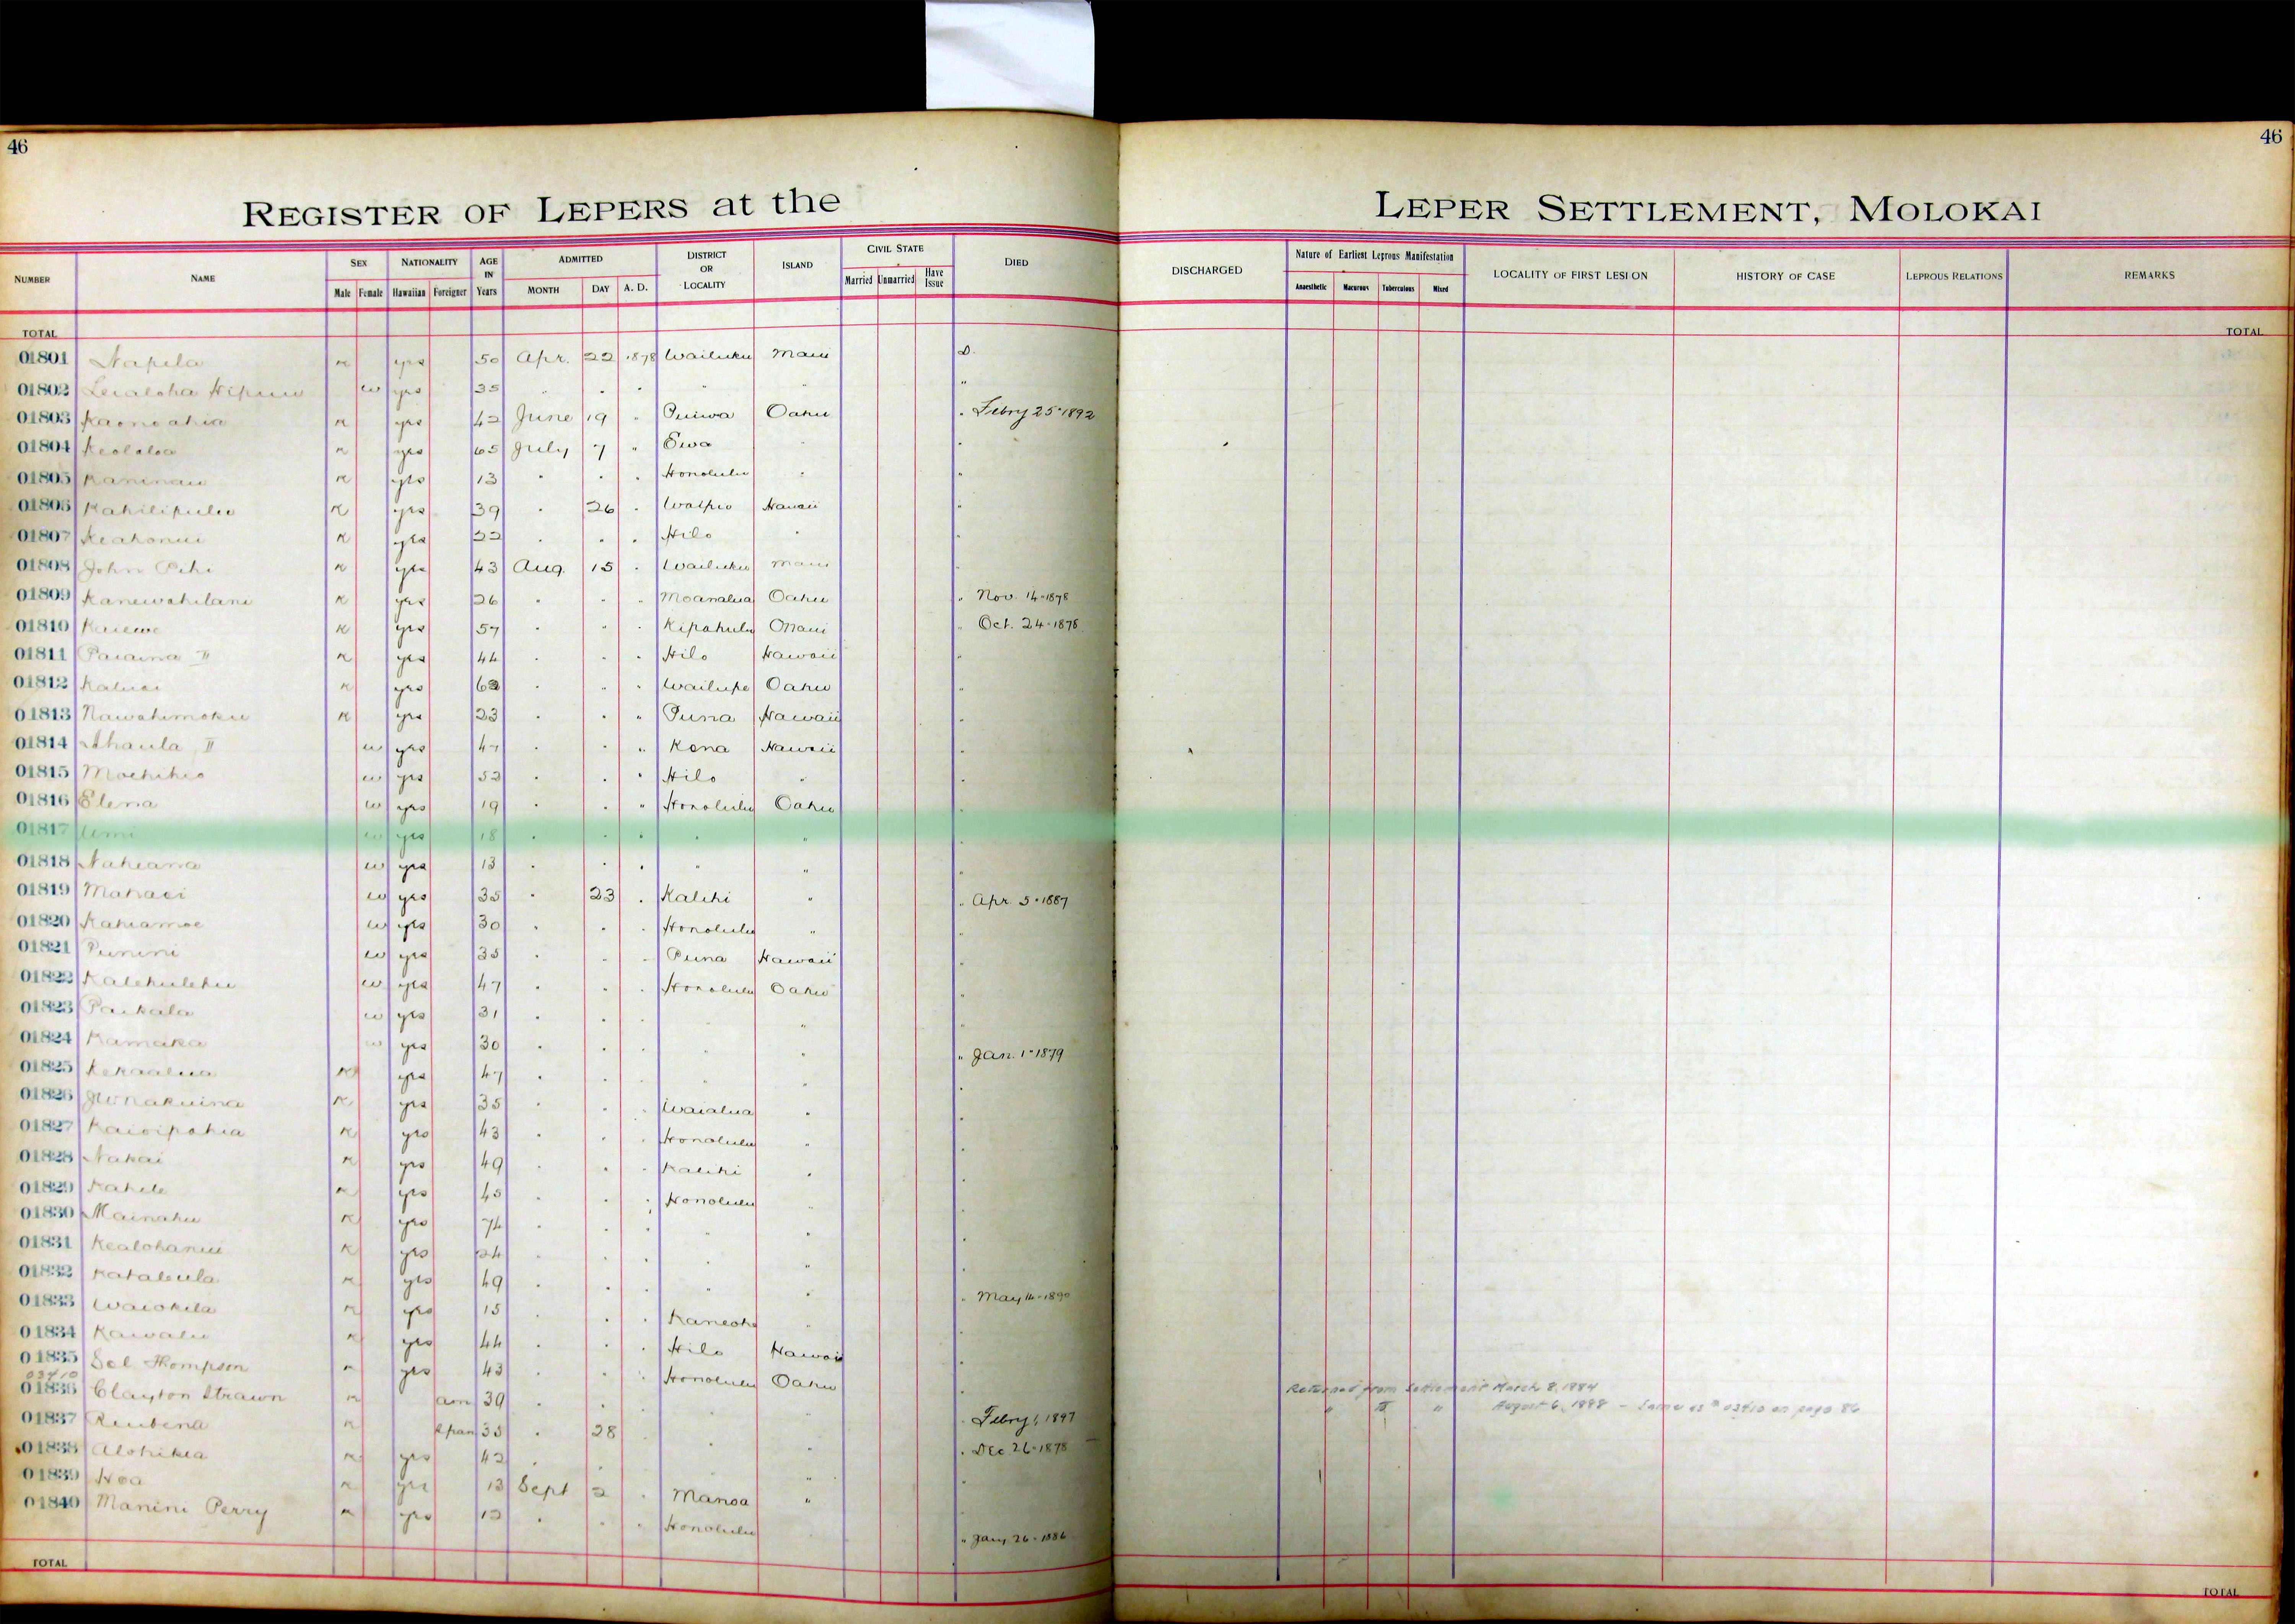 46
46
REGISTER OF LEPERS at the LEPER SETTLEMENT, MOLOKAI
NUMBER NAME SEX Male Female NATIONALITY Hawaiian Foreigner AGE IN Years ADMITTED MONTH DAY A. D. DISTRICT OR LOCALITY ISLAND CIVIL STATE Married Unmarried Have Issue DIED DISCHARGED Nature of Earliest Leprous Manifestation Anaesthetic Macurous Tuberculous Mixed LOCALITY OF FIRST LESION HISTORY OF CASE LEPROUS RELATIONS REMARKS
TOTAL TOTAL
01801 Napela m yes 50 Apr. 22 1878 Wailuku Maui D.
01802 Lealoha Hipuu w yes 35 " " " " " "
01803 Kaonoahia m yes 42 June 19 " Puiwa Oahu " Febry 25-1892
01804 Keololoa m yes 65 July 7 " Ewa " "
01805 Kaninau m yes 13 " " " Honolulu " "
01806 Kahilipulu m yes 39 " 26 " Waipio Hawaii "
01807 Keahonui m yes 22 " " " Hilo " "
01808 John Pihi m yes 43 Aug. 15 " Wailuku Maui "
01809 Kanewahilani m yes 26 " " " Moanalua Oahu " Nov. 14-1878
01810 Kaiewe m yes 57 " " " Kipahulu Maui " Oct. 24-1878
01811 Paiaina II m yes 44 " " " Hilo Hawaii "
01812 Kaluai m yes 62 " " " Wailupe Oahu "
01813 Nawahimoku m yes 23 " " " Puna Hawaii "
01814 Ahaula II w yes 47 " " " Kona Hawaii "
01815 Moehikio w yes 52 " " " Hilo " "
01816 Elena w yes 19 " " " Honolulu Oahu "
01817 Umi w yes 18 " " " " " "
01818 Nahiana w yes 13 " " " " " "
01819 Mahaei w yes 35 " 23 " Kalihi " " Apr. 5-1887
01820 Kahiamoe w yes 30 " " " Honolulu " "
01821 Punini w yes 35 " " " Puna Hawaii "
01822 Kalehulehu w yes 47 " " " Honolulu Oahu "
01823 Paikala w yes 31 " " " " "
01824 Kamaka w yes 30 " " " " " " Jan. 1-1879
01825 Kekaalua m yes 47 " " " " " "
01826 m yes 35 " " " Waialua " "
01827 Kaioipahia m yes 43 " " " Honolulu " "
01828 Nakai m yes 49 " " " Kalihi " "
01829 Kahele m yes 45 " " " Honolulu " "
01830 Mainahu m yes 74 " " " " "
01831 Kealohanui m yes 24 " " " " "
01832 Katalaula m yes 49 " " " " " May 14-1890
01833 Waiokila m yes 15 " " " Kaneohe " "
01834 Kawalu m yes 44 " " " Hilo Hawaii "
01835 Sol Thompson m yes 43 " " " Honolulu Oahu "
03410
01836 Clayton Strawn m am 39 " " " " " " Febry 1, 1897 Returned from Settlement March 8, 1884
" " " August 6, 1888 - Same as # 03410 on page 86
01837 Reubena m Span 35 " 28 " " " Dec 26-1878
01838 Alohikea m yes 42 " " " "
01839 Hoa m yes 13 Sept 2 " Manoa " "
01840 Manini Perry m yes 12 " " " Honolulu " Jany 26-1886
TOTAL TOTAL